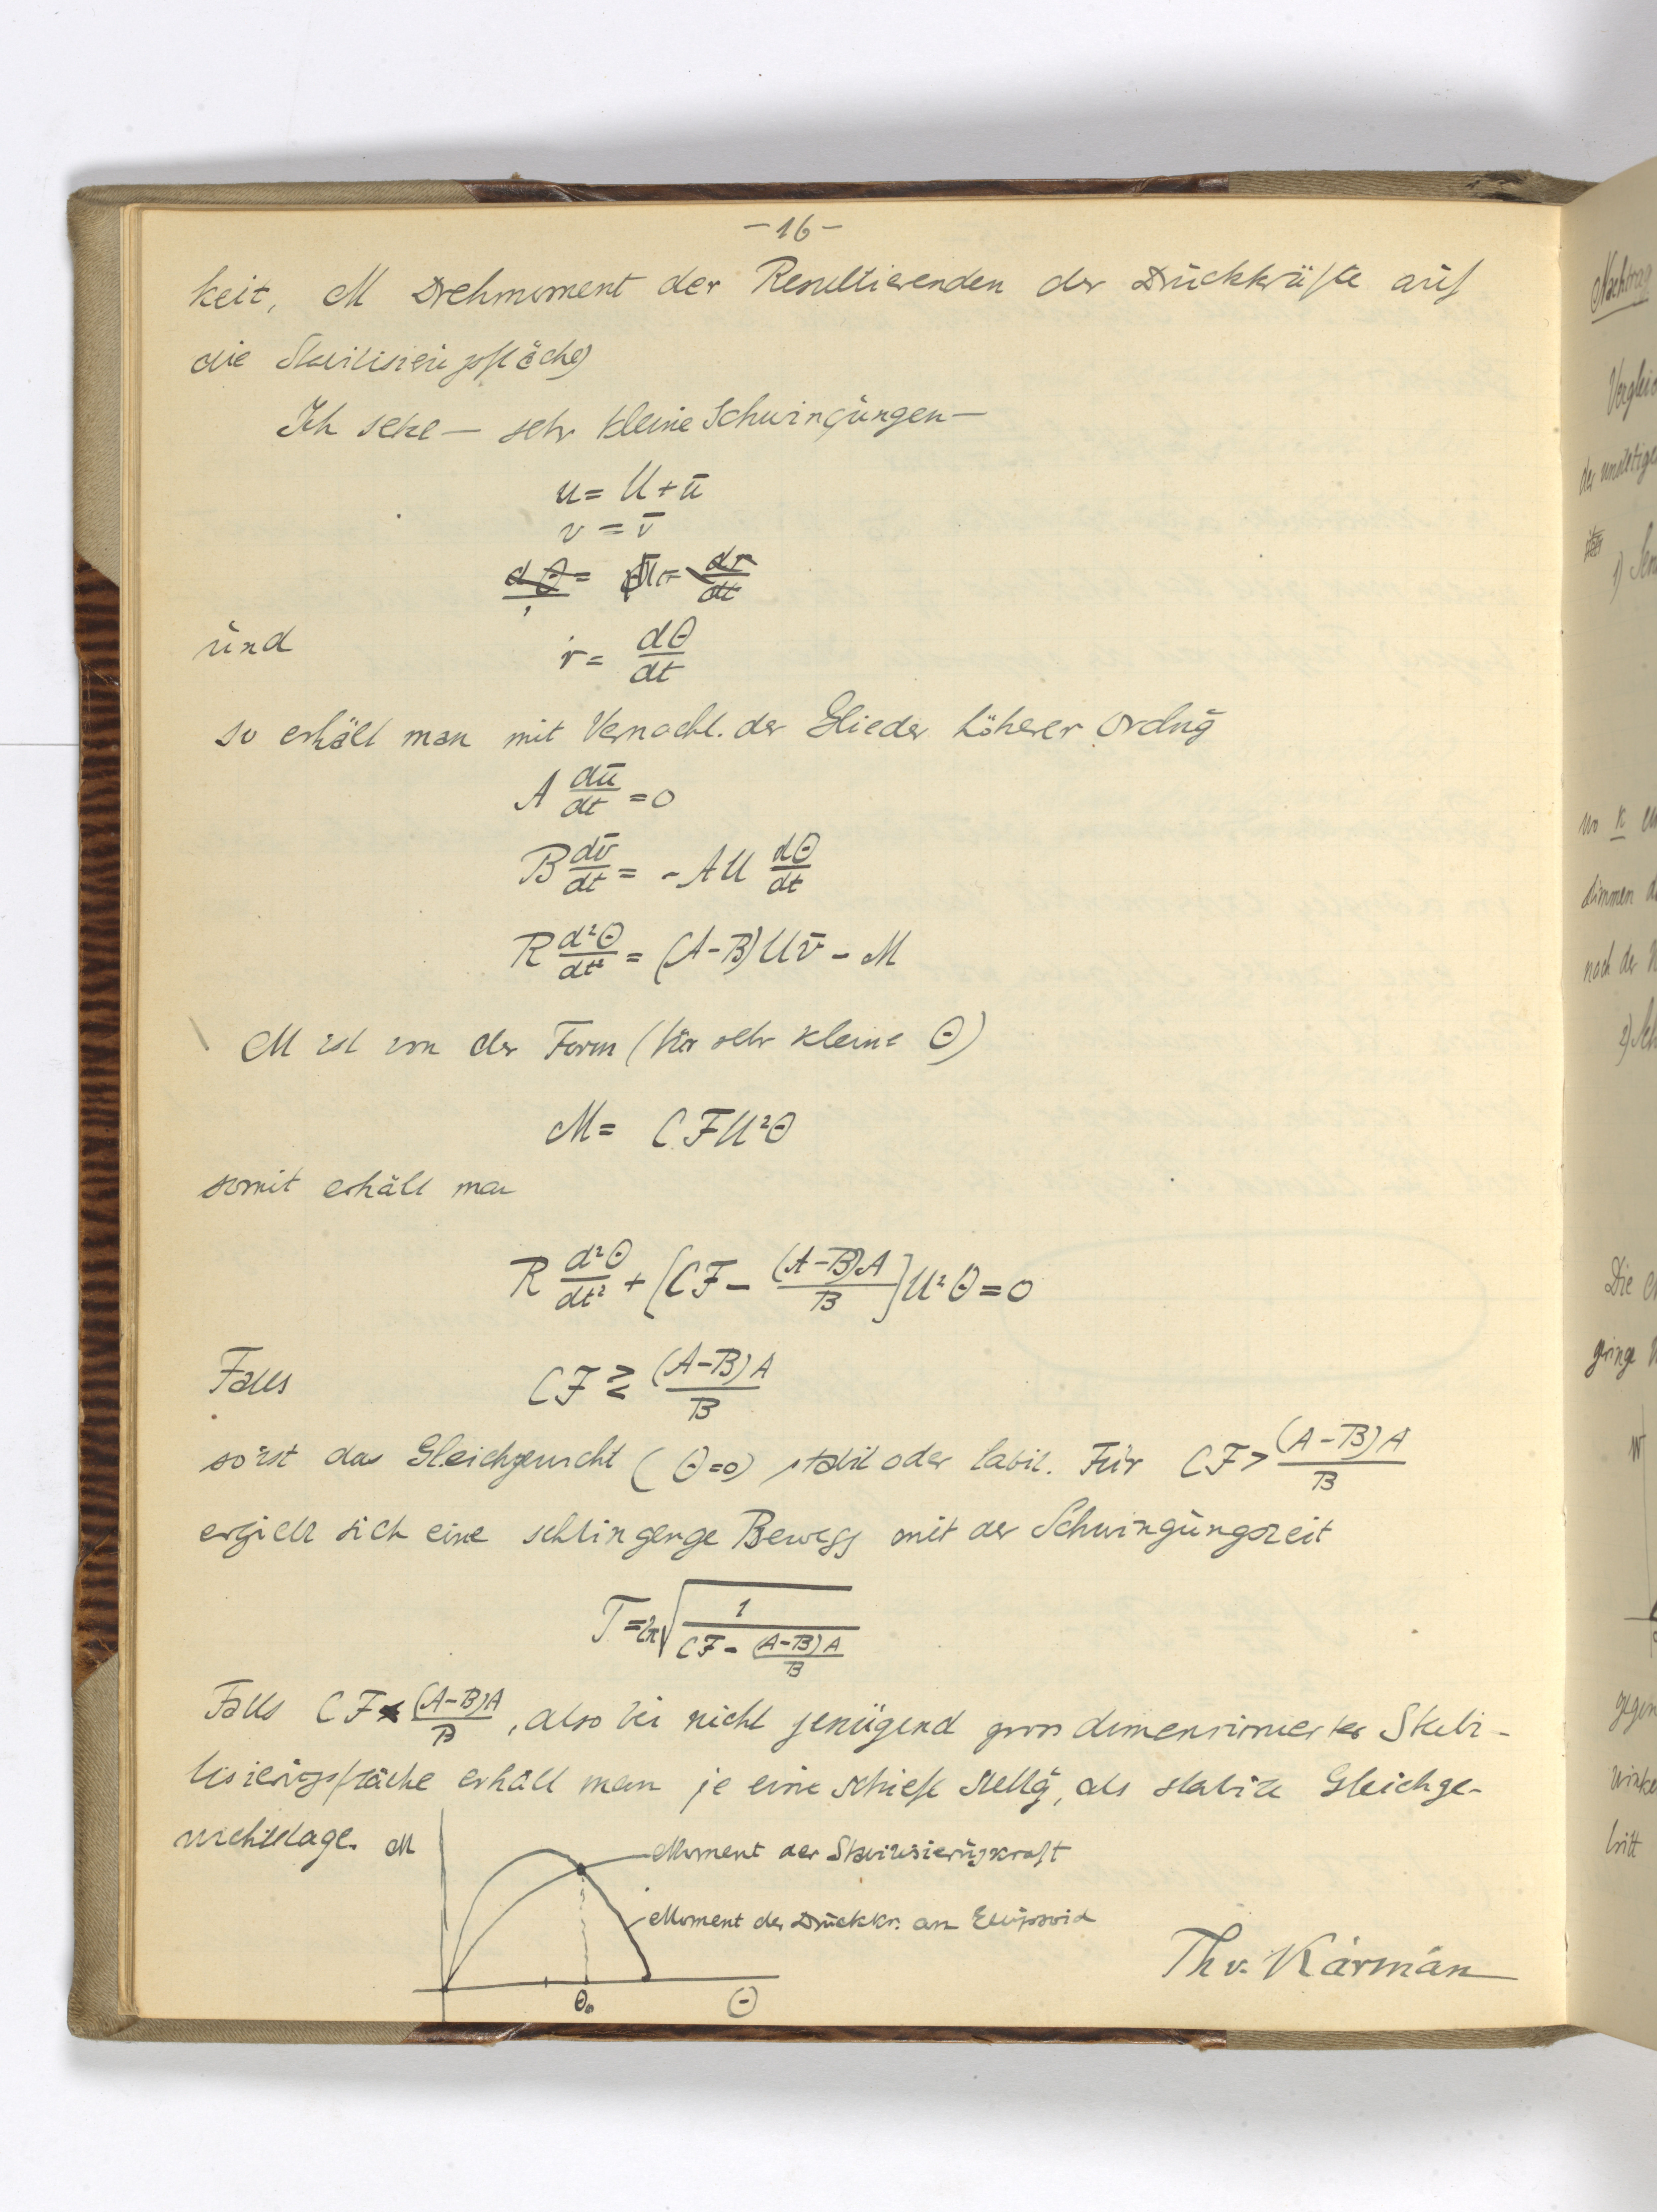 -16-
keit, M Drehmoment der Resultierenden der Druckkräfte auf
die Stabilisierungsfläche)
Ich setze — sehr kleine Schwingungen —
u = U + ū
v = v̄
und r = dθ/dt
so erhält man mit Vernachl. der Glieder höherer Ordng
A dū/dt = 0
B dv̄/dt = - A U dθ/dt
R d²θ/dt² = (A-B) U v̄ - M
M ist von der Form (für sehr kleine θ)
M = C F U² θ
somit erhält man
R d²θ/dt² + [CF - (A-B)A/B] U² θ = 0
Falls CF ≷ (A-B)A/B
so ist das Gleichgewicht (θ=0) stabil oder labil. Für CF > (A-B)A/B
ergiebt sich eine schwingende Bewegg mit der Schwingungszeit
T = 2π √(1/(CF - (A-B)A/B))
Falls CF < (A-B)A/B, also bei nicht genügend gross dimensionierter Stabi-
lisierungsfläche erhält man je eine schiefe Stellg, als stabile Gleichge-
wichtslage.
M
Moment der Stabilisierungskraft
Moment der Druckkr. am Ellipsoid
θ₀
θ
Th v. Kármán
Nachtrag
1)
wo k
nach der
2)
Die
W
gegen